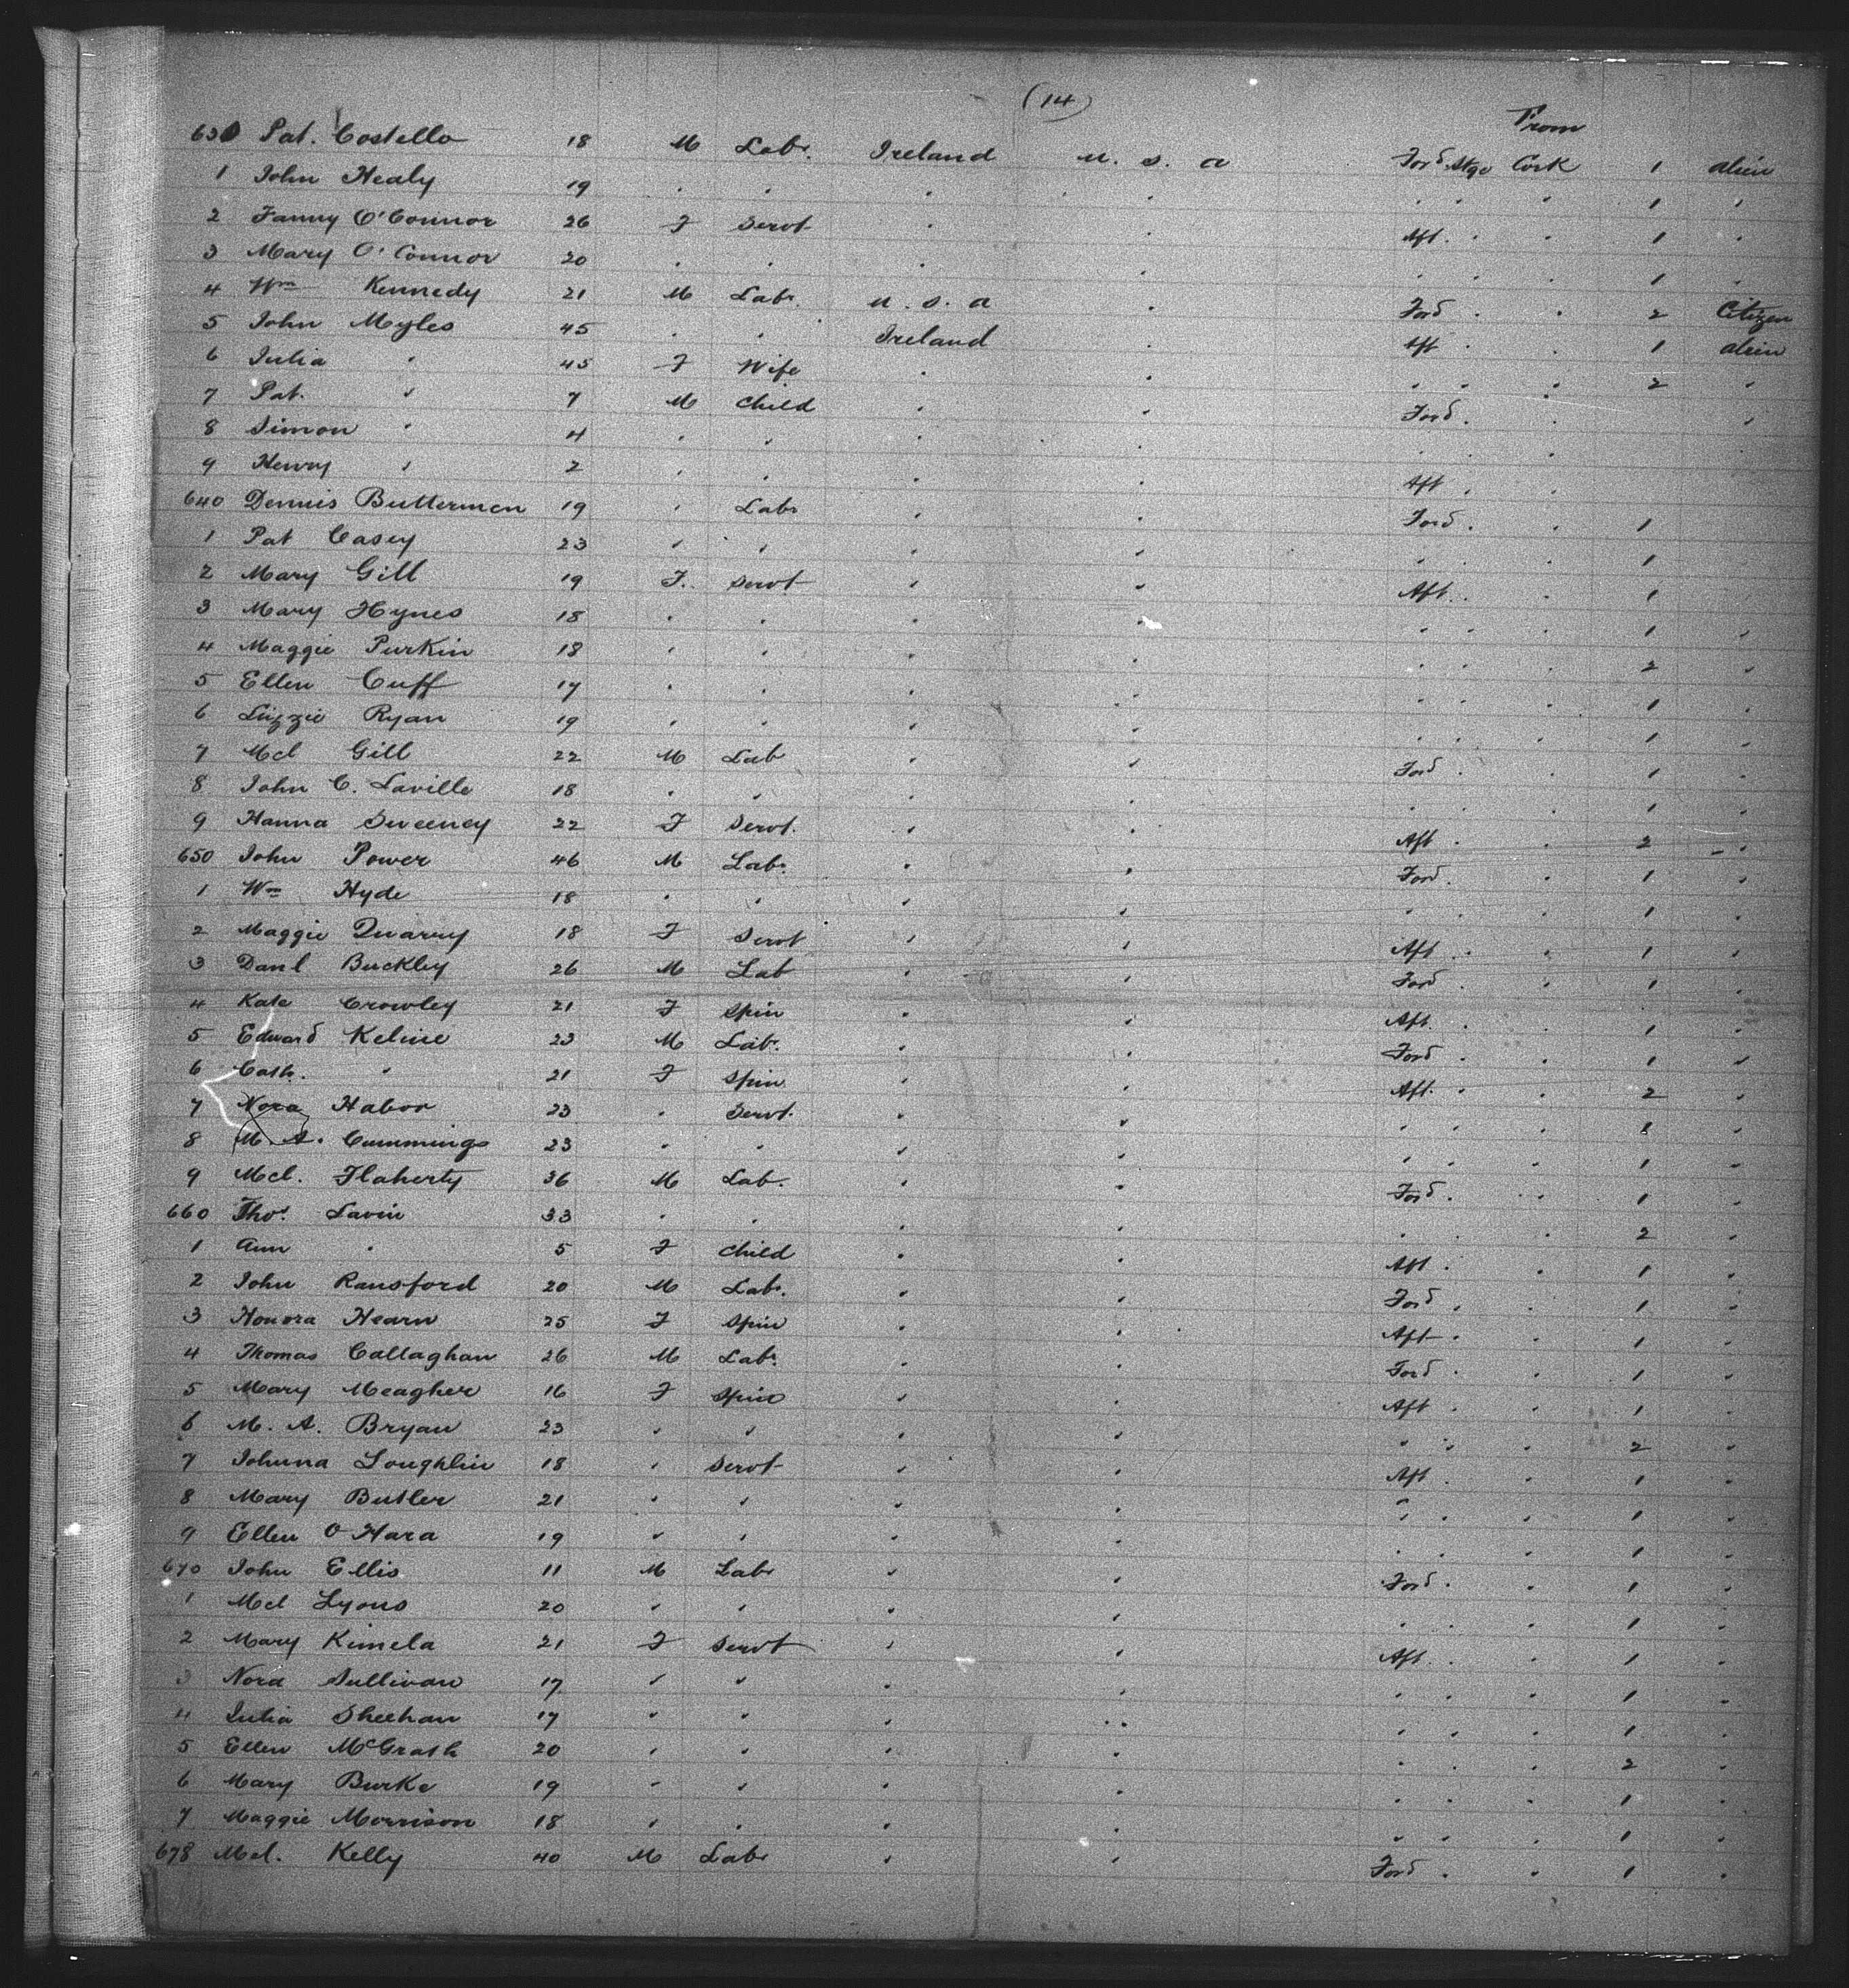 (14)
From
630 Pat. Costello 18 M Labr. Ireland U. S. A Ford Stge Cork 1 Alien
1 John Healy 19 " " " " " " " 1 "
2 Fanny O'Connor 26 F Servt " " Aft. " " 1 "
3 Mary O'Connor 20 " " " " " " " 1 "
4 Wm Kennedy 21 M Labr. U. S. A " Ford " " 2 Citizen
5 John Myles 45 " " Ireland " Aft " " 1 Alien
6 Julia " 45 F Wife " " " " " 2 "
7 Pat. " 7 M Child " " Ford " " "
8 Simon " 4 " " " " " " "
9 Henry " 2 " " " " Aft " "
640 Dennis Buttermen 19 " Labr " " Ford " " 1
1 Pat Casey 23 " " " " " " " 1
2 Mary Gill 19 F. Servt " " Aft. " " 1
3 Mary Hynes 18 " " " " " " " 1 "
4 Maggie Purkin 18 " " " " " " " 2 "
5 Ellen Cuff 17 " " " " " " " 1 "
6 Lizzie Ryan 19 " " " " " " " 1 "
7 Mcl Gill 22 M Lab " " Ford " " 1 "
8 John C. Laville 18 " " " " " " " 1 "
9 Hanna Sweeney 22 F Servt. " " Aft " " 2 "
650 John Power 46 M Labr. " " Ford " " 1 "
1 Wm Hyde 18 " " " " " " " 1 "
2 Maggie Quarry 18 F Servt " " Aft " " 1 "
3 Danl Buckley 26 M Lab " " Ford " " 1 "
4 Kate Crowley 21 F Spin " " Aft. " " 1 "
5 Edward Keline 23 M Labr. " " Ford " " 1 "
6 Cath. " 21 F Spin " " Aft. " " 2 "
7 Nora Habor 23 " Servt. " " " " " 1 "
8 M. A. Cummings 23 " " " " " " " 1 "
9 Mcl. Flaherty 36 M Lab. " " Ford " " 1 "
660 Thos. Lavin 33 " " " " " " " 2 "
1 Ann " 5 F Child " " Aft " " 1 "
2 John Ransford 20 M Labr. " " Ford " " 1 "
3 Honora Hearn 25 F Spin " " Aft " " 1 "
4 Thomas Callaghan 26 M Labr. " " Ford " " 1 "
5 Mary Meagher 16 F Spin " " Aft " " 1 "
6 M. A. Bryan 23 " " " " " " " 2 "
7 Johuna Loughlin 18 " Servt " " Aft " " 1 "
8 Mary Butler 21 " " " " " " " 1 "
9 Ellen O Hara 19 " " " " " " " 1 "
670 John Ellis 11 M Labr " " Ford " " 1 "
1 Mcl Lyons 20 " " " " " " " 1 "
2 Mary Kimela 21 F Servt " " Aft. " " 1 "
3 Nora Sullivan 17 " " " " " " " 1 "
4 Julia Sheehan 17 " " " " " " " 1 "
5 Ellen McGrath 20 " " " " " " " 2 "
6 Mary Burke 19 " " " " " " " 1 "
7 Maggie Morrison 18 " " " " " " " 1 "
678 Mcl. Kelly 40 M Labr " " Ford " " 1 "